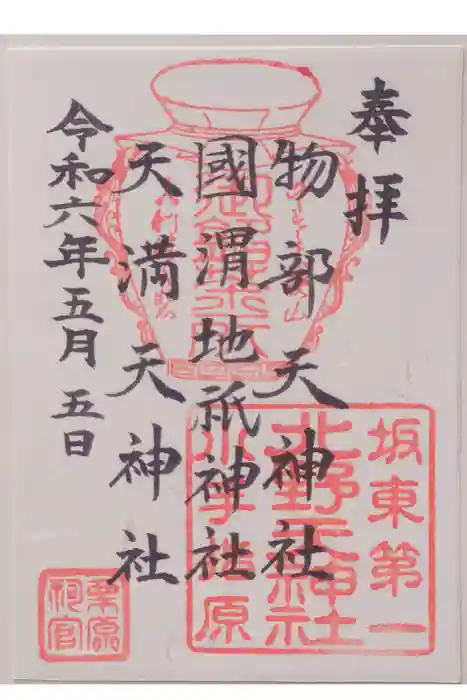 奉拝
物部天神社
國渭地祇神社
天満天神社
令和六年五月五日
坂東第一
北野天神社
小手指原
栗原
祠官